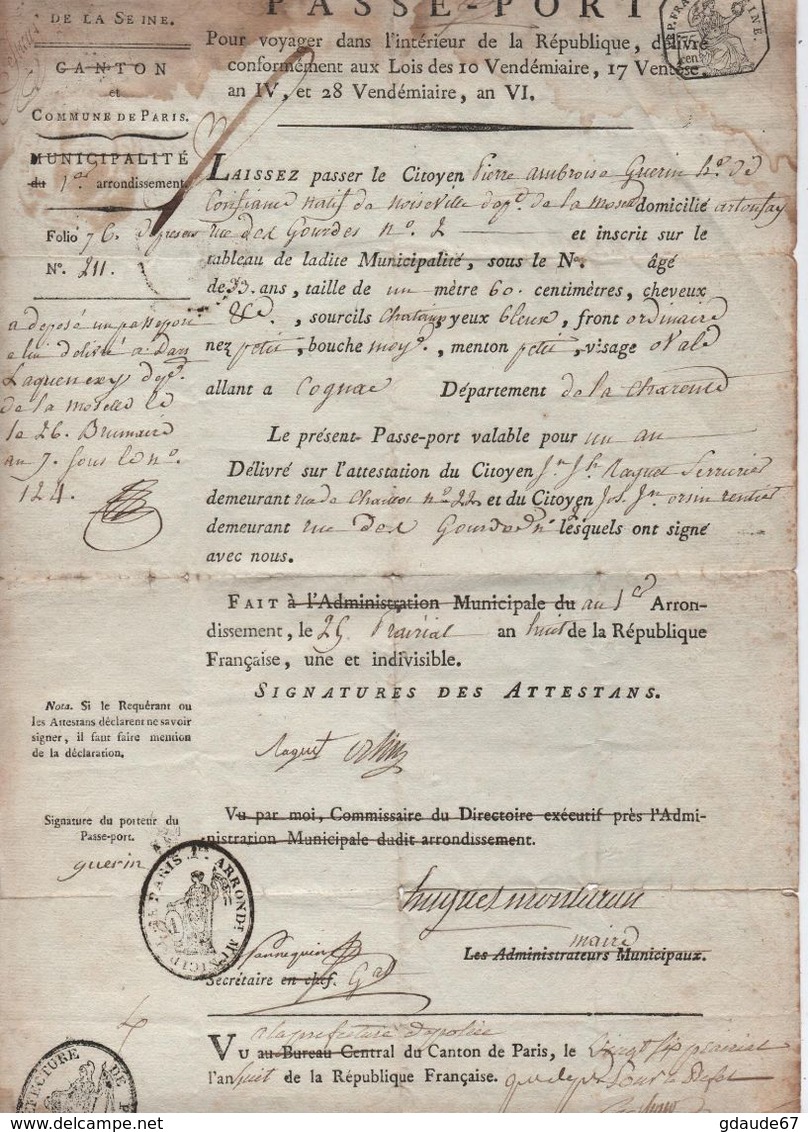 DE LA SEINE.
CANTON
et
COMMUNE DE PARIS.
MUNICIPALITÉ
du 1er arrondissement.
Folio 76
N°. 211.
a deposé un passeport
a lui délivré a
Laquenexy depr.
de la moselle le
le 26. Brumaire
an 7. sous le no.
124.
Nota. Si le Requérant ou
les Attestans déclarent ne savoir
signer, il faut faire mention
de la déclaration.
Signature du porteur du
Passe-port.
guerin
PASSE-PORT
Pour voyager dans l'intérieur de la République, délivré
conformément aux Lois des 10 Vendémiaire, 17 Ventose,
an IV, et 28 Vendémiaire, an VI.
LAISSEZ passer le Citoyen Pierre ambroise Guerin h.e de
Confiance natif de noiseville dept. de la domicilié
rue des Gourdes no. 2 et inscrit sur le
tableau de ladite Municipalité, sous le N°. âgé
de 33. ans, taille de un mètre 60. centimètres, cheveux
&c. , sourcils chatains, yeux bleux, front ordinaire
nez petit, bouche moye., menton petit, visage ovale
allant a Cognac Département de la charente
Le présent Passe-port valable pour un an
Délivré sur l'attestation du Citoyen Jn. Jh. Raquet Serrurier
demeurant rue de chaillot no. 22 et du Citoyen Jos. Jn. orsin rentier
demeurant rue des Gourdes lesquels ont signé
avec nous.
FAIT à l'Administration Municipale du au 1er Arron-
dissement, le 25 Prairial an huit de la République
Française, une et indivisible.
SIGNATURES DES ATTESTANS.
Raquet orsin
Vu par moi, Commissaire du Directoire exécutif près l'Admi-
nistration Municipale dudit arrondissement.
PARIS 1er. ARRONDt. MUNICIP
huguet montaran
maire
Les Administrateurs Municipaux.
Secrétaire en chef. Gal
VU a la prefecture de police
au Bureau Central du Canton de Paris, le Vingt six prairial
l'an huit de la République Française.
PREFECTURE DE
gdaude67